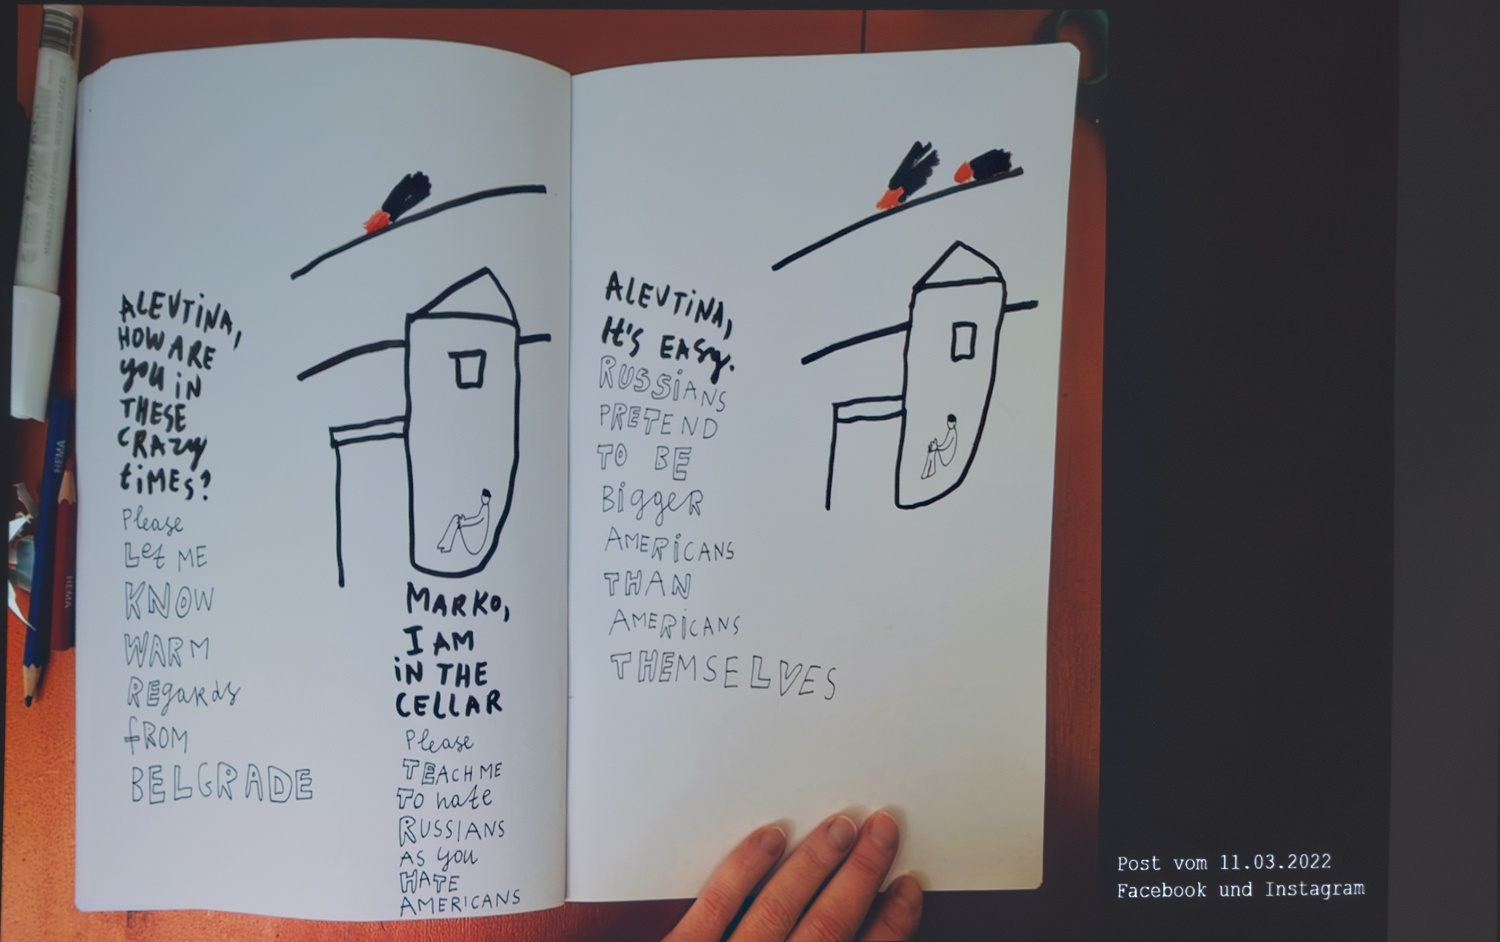 ALEVTINA,
HOW ARE
you iN
THESE
CRAZY
tiMES?
Please
Let ME
KNOW
WARM
REgaRds
fROM
BELGRADE
MARKO,
I AM
iN THE
CELLAR
Please
TEACH ME
To hate
RUSSIANS
AS you
HATE
AMERICANS
ALEVTiNA,
It'S EASy.
RUSSiANS
PRETEND
TO BE
BiggeR
AMERiCANS
THAN
AMERiCANS
THEMSELVES
HEMA
HEMA
Post vom 11.03.2022
Facebook und Instagram